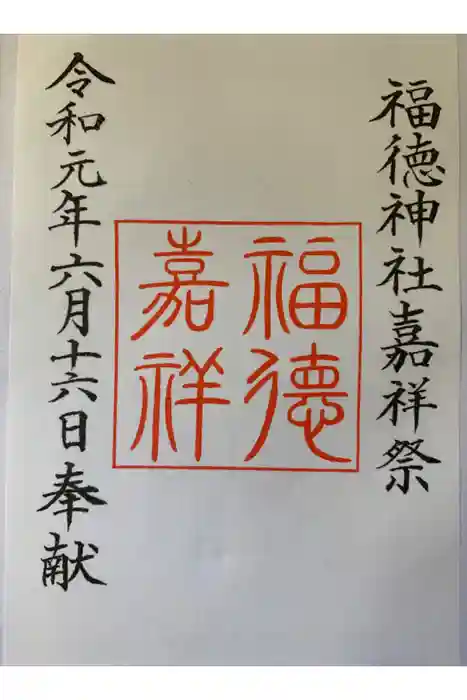 福徳神社嘉祥祭
福德
嘉祥
令和元年六月十六日奉献